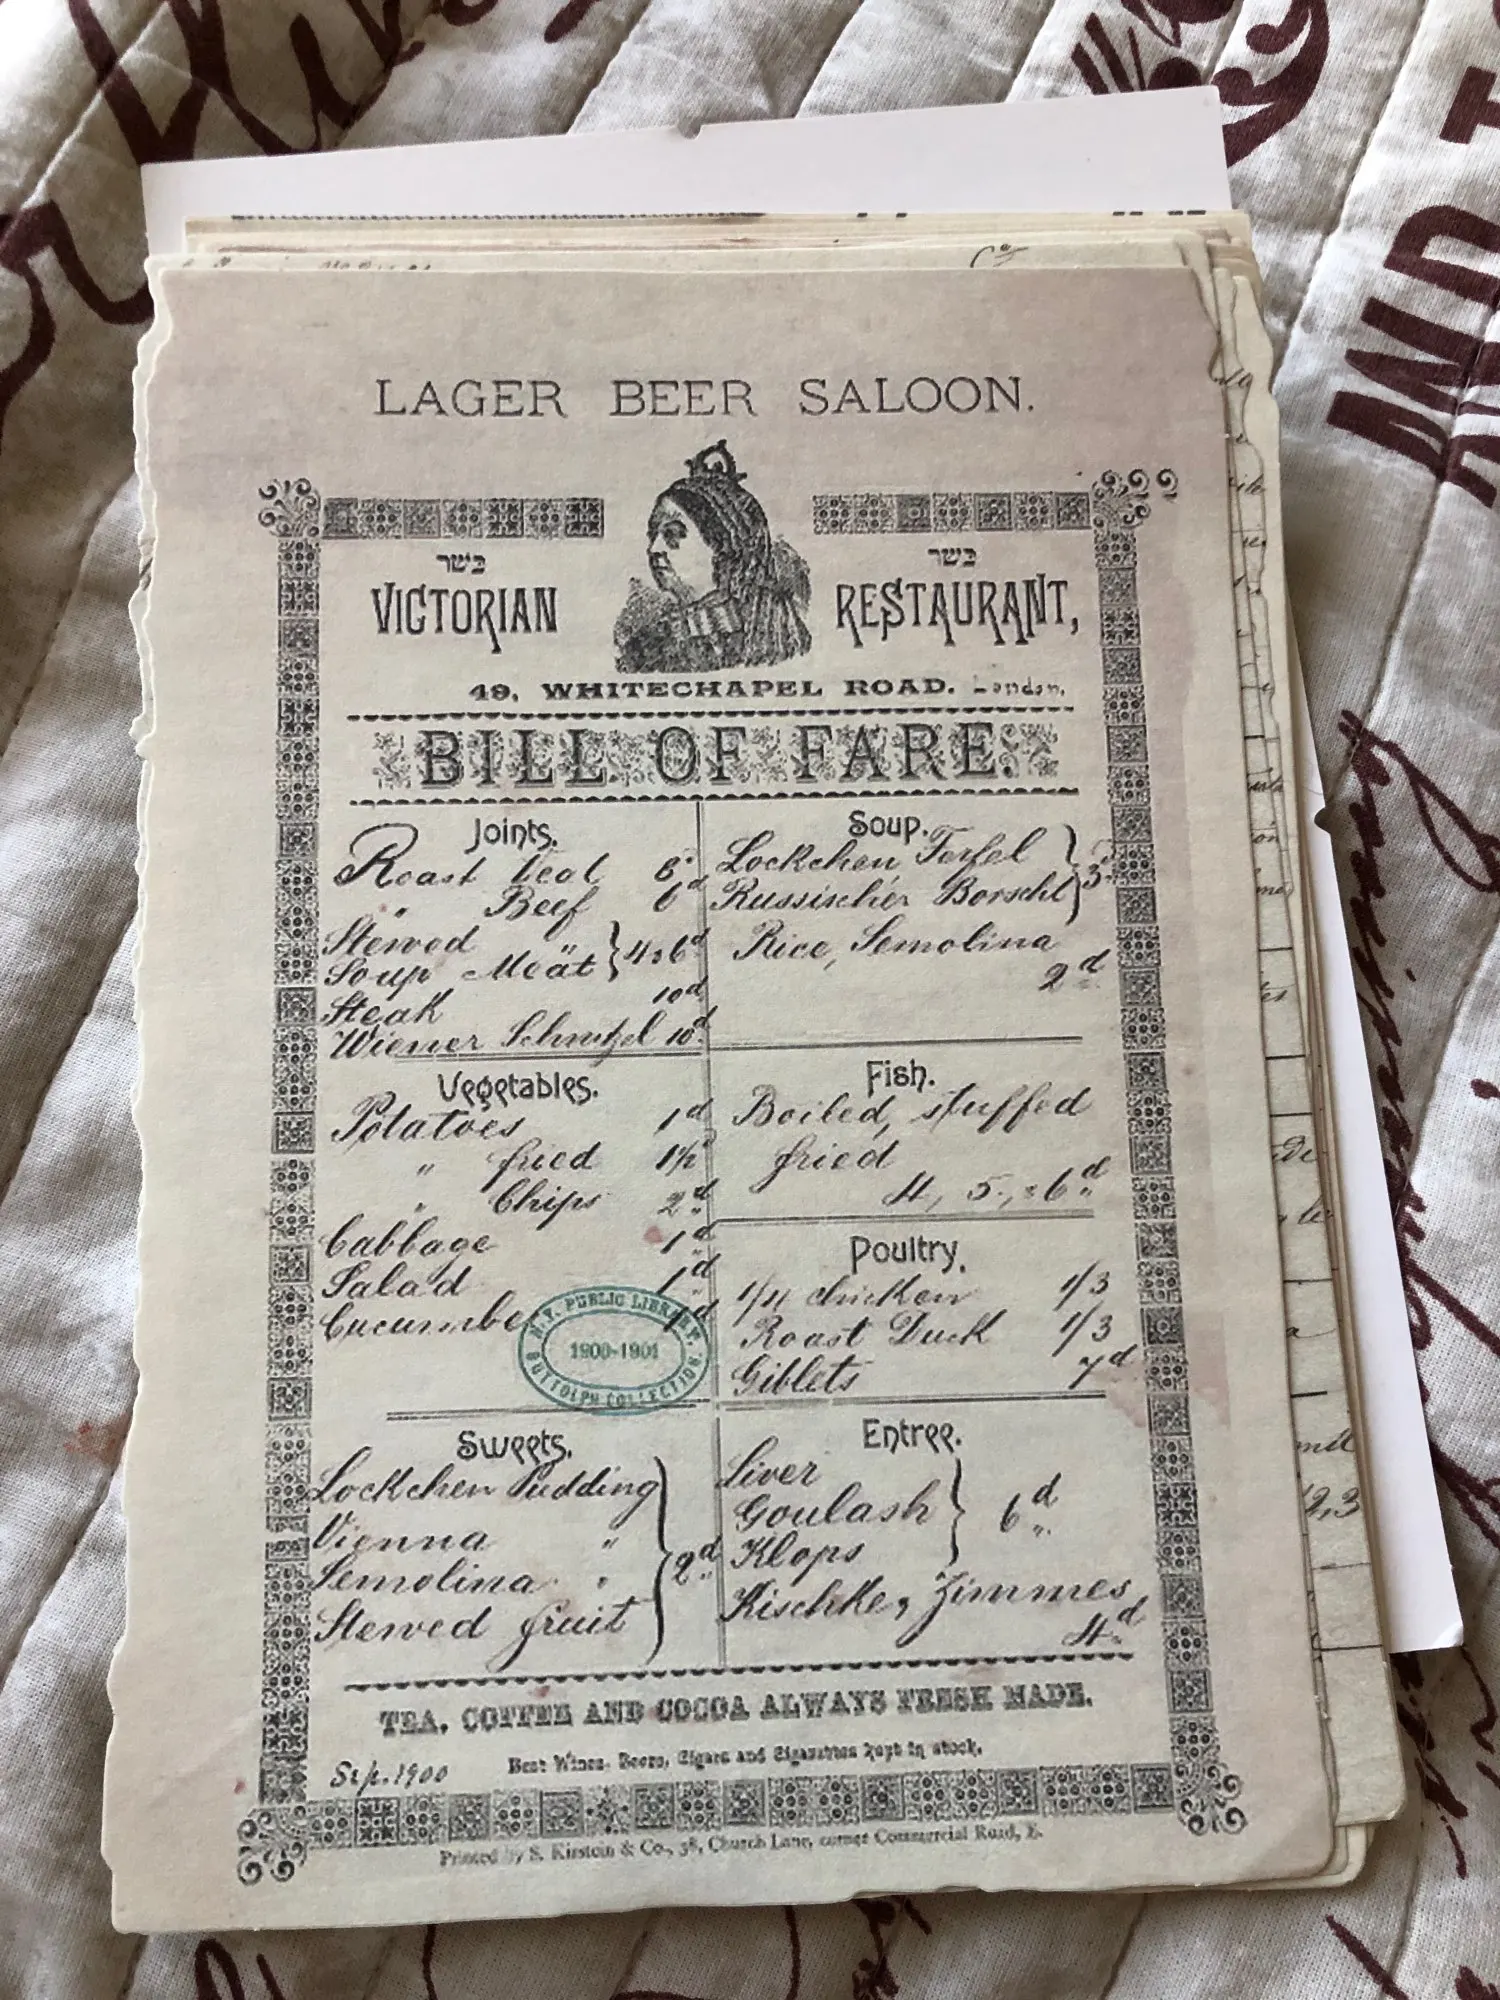 LAGER BEER SALOON.
בשר בשר
VICTORIAN RESTAURANT,
49, WHITECHAPEL ROAD. London.
BILL OF FARE.
Joints.
Roast Veal 6d
" Beef 6d
Stewed "
Soup Meat 4 & 6d
Steak 10d
Wiener Schnitzel 10d
Soup.
Lockchen, Ferfel
Russischer Borscht 3d
Rice, Semolina
2d
Vegetables.
Potatoes 1d
" fried 1½d
" Chips 2d
Cabbage 1d
Salad 1d
Cucumber 1d
Fish.
Boiled, stuffed
fried
4, 5, & 6d
Poultry.
1/4 chicken 1/3
Roast Duck 1/3
Giblets 7d
N.Y. PUBLIC LIBRARY.
1900-1901
BUTTOLPH COLLECTION.
Sweets.
Lockchen Pudding
Vienna "
Semolina "
Stewed fruit
2d
Entree.
Liver
Goulash
Klops
6d
Kischke, Zimmes
4d
TEA, COFFEE AND COCOA ALWAYS FRESH MADE.
Best Wines, Beers, Cigars and Cigarettes kept in stock.
Sep. 1900
Printed by S. Kirstein & Co., 38, Church Lane, corner Commercial Road, E.